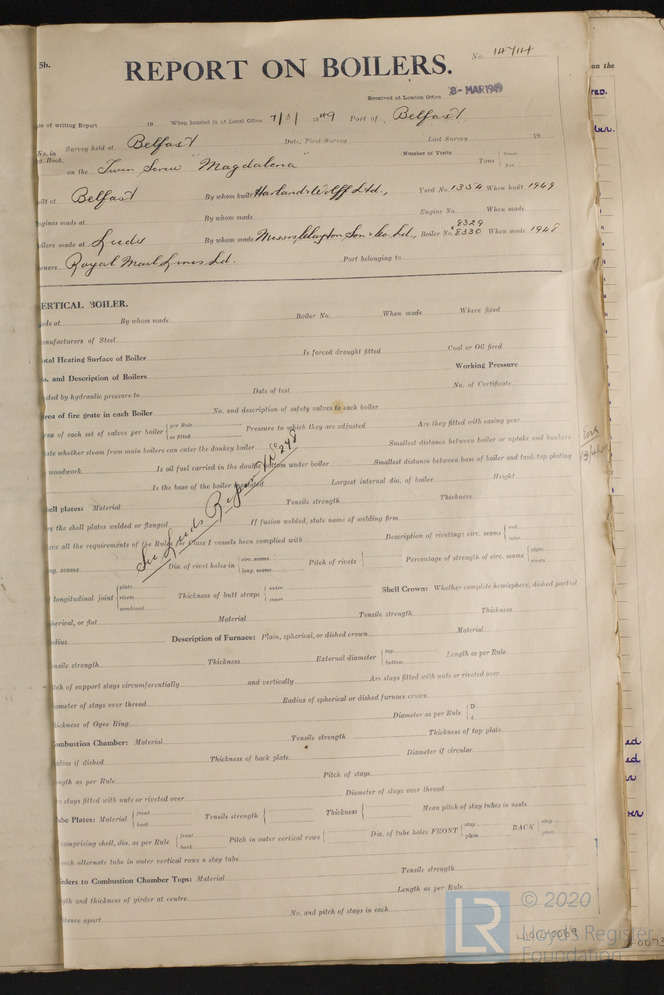 5b.
No. 14714
REPORT ON BOILERS.
Received at London Office 8- MAR 1949
of writing Report 19 When handed in at Local Office 7/3/ 1949 Port of Belfast
No. in Survey held at Belfast Date, First Survey Last Survey 19
Book. (Number of Visits
on the Twin Screw "Magdalena" Tons Gross Net
Built at Belfast By whom built Harland & Wolff Ltd., Yard No. 1354 When built 1949
Engines made at By whom made Engine No. When made
Boilers made at Leeds By whom made Messrs Clayton Son & Co. Ld., Boiler No. 8329 8330 When made 1948
Owners Royal Mail Lines Ld. Port belonging to
VERTICAL BOILER.
Made at By whom made Boiler No. When made Where fixed
Manufacturers of Steel
Total Heating Surface of Boiler Is forced draught fitted Coal or Oil fired
No. and Description of Boilers Working Pressure
Tested by hydraulic pressure to Date of test No. of Certificate
Area of fire grate in each Boiler No. and description of safety valves to each boiler
Area of each set of valves per boiler per Rule as fitted Pressure to which they are adjusted Are they fitted with easing gear
State whether steam from main boilers can enter the donkey boiler Smallest distance between boiler or uptake and bunkers
woodwork Is oil fuel carried in the double bottom under boiler Smallest distance between base of boiler and tank top plating
Is the base of the boiler insulated Largest internal dia. of boiler Height
Shell plates: Material Tensile strength Thickness
Are the shell plates welded or flanged If fusion welded, state name of welding firm
Have all the requirements of the Rules for Class I vessels been complied with Description of riveting: circ. seams end inter
long. seams Dia. of rivet holes in circ. seams long. seams Pitch of rivets Percentage of strength of circ. seams plate rivets
See Leeds Report No 248
of longitudinal joint plate rivets combined Thickness of butt straps outer inner Shell Crown: Whether complete hemisphere, dished partial
spherical, or flat Material Tensile strength Thickness
Radius Description of Furnace: Plain, spherical, or dished crown Material
Tensile strength Thickness External diameter top bottom Length as per Rule
Pitch of support stays circumferentially and vertically Are stays fitted with nuts or riveted over
Diameter of stays over thread Radius of spherical or dished furnace crown
Thickness of Ogee Ring Diameter as per Rule D. d.
Combustion Chamber: Material Tensile strength Thickness of top plate
Radius if dished Thickness of back plate Diameter if circular
Length as per Rule Pitch of stays
Are stays fitted with nuts or riveted over Diameter of stays over thread
Tube Plates: Material front back Tensile strength Thickness Mean pitch of stay tubes in nests
comprising shell, dia. as per Rule front back Pitch in outer vertical rows Dia. of tube holes FRONT stay plain BACK stay plain
each alternate tube in outer vertical rows a stay tube
Girders to Combustion Chamber Tops: Material Tensile strength
Depth and thickness of girder at centre Length as per Rule
Distance apart No. and pitch of stays in each
LR © 2020
Lloyd's Register
Foundation
on the